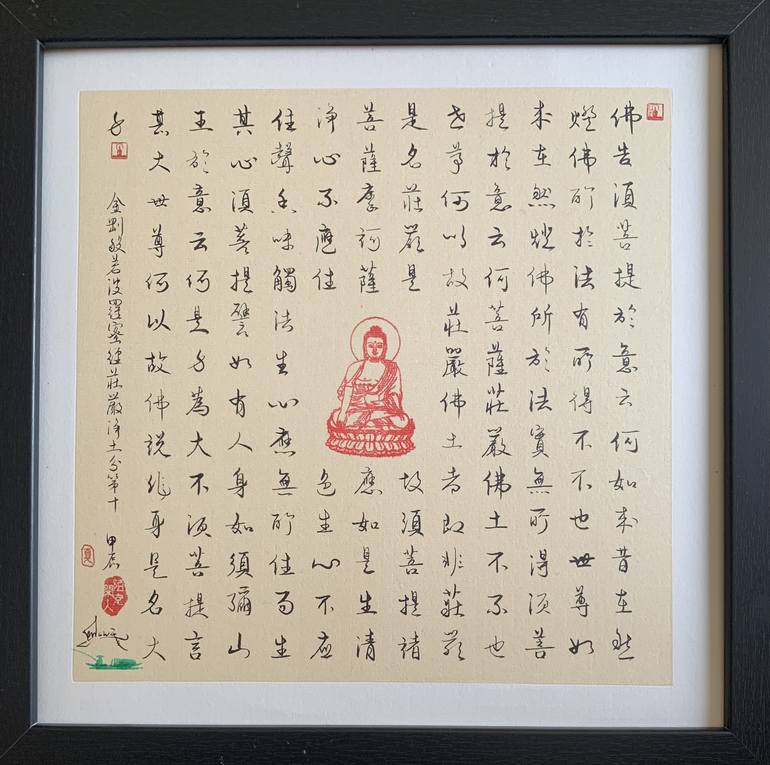 佛告須菩提於意云何如来昔在然
燈佛所於法有所得不不也世尊如
来在然燈佛所於法實無所得須菩
提於意云何菩薩莊嚴佛土不不也
世尊何以故莊嚴佛土者即非莊嚴
是名莊嚴是故須菩提諸
菩薩摩訶薩應如是生清
淨心不應住色生心不應
住聲香味觸法生心應無所住而生
其心須菩提譬如有人身如須彌山
王於意云何是身為大不須菩提言
甚大世尊何以故佛說非身是名大
身
金剛般若波羅蜜經莊嚴淨土分第十 甲辰